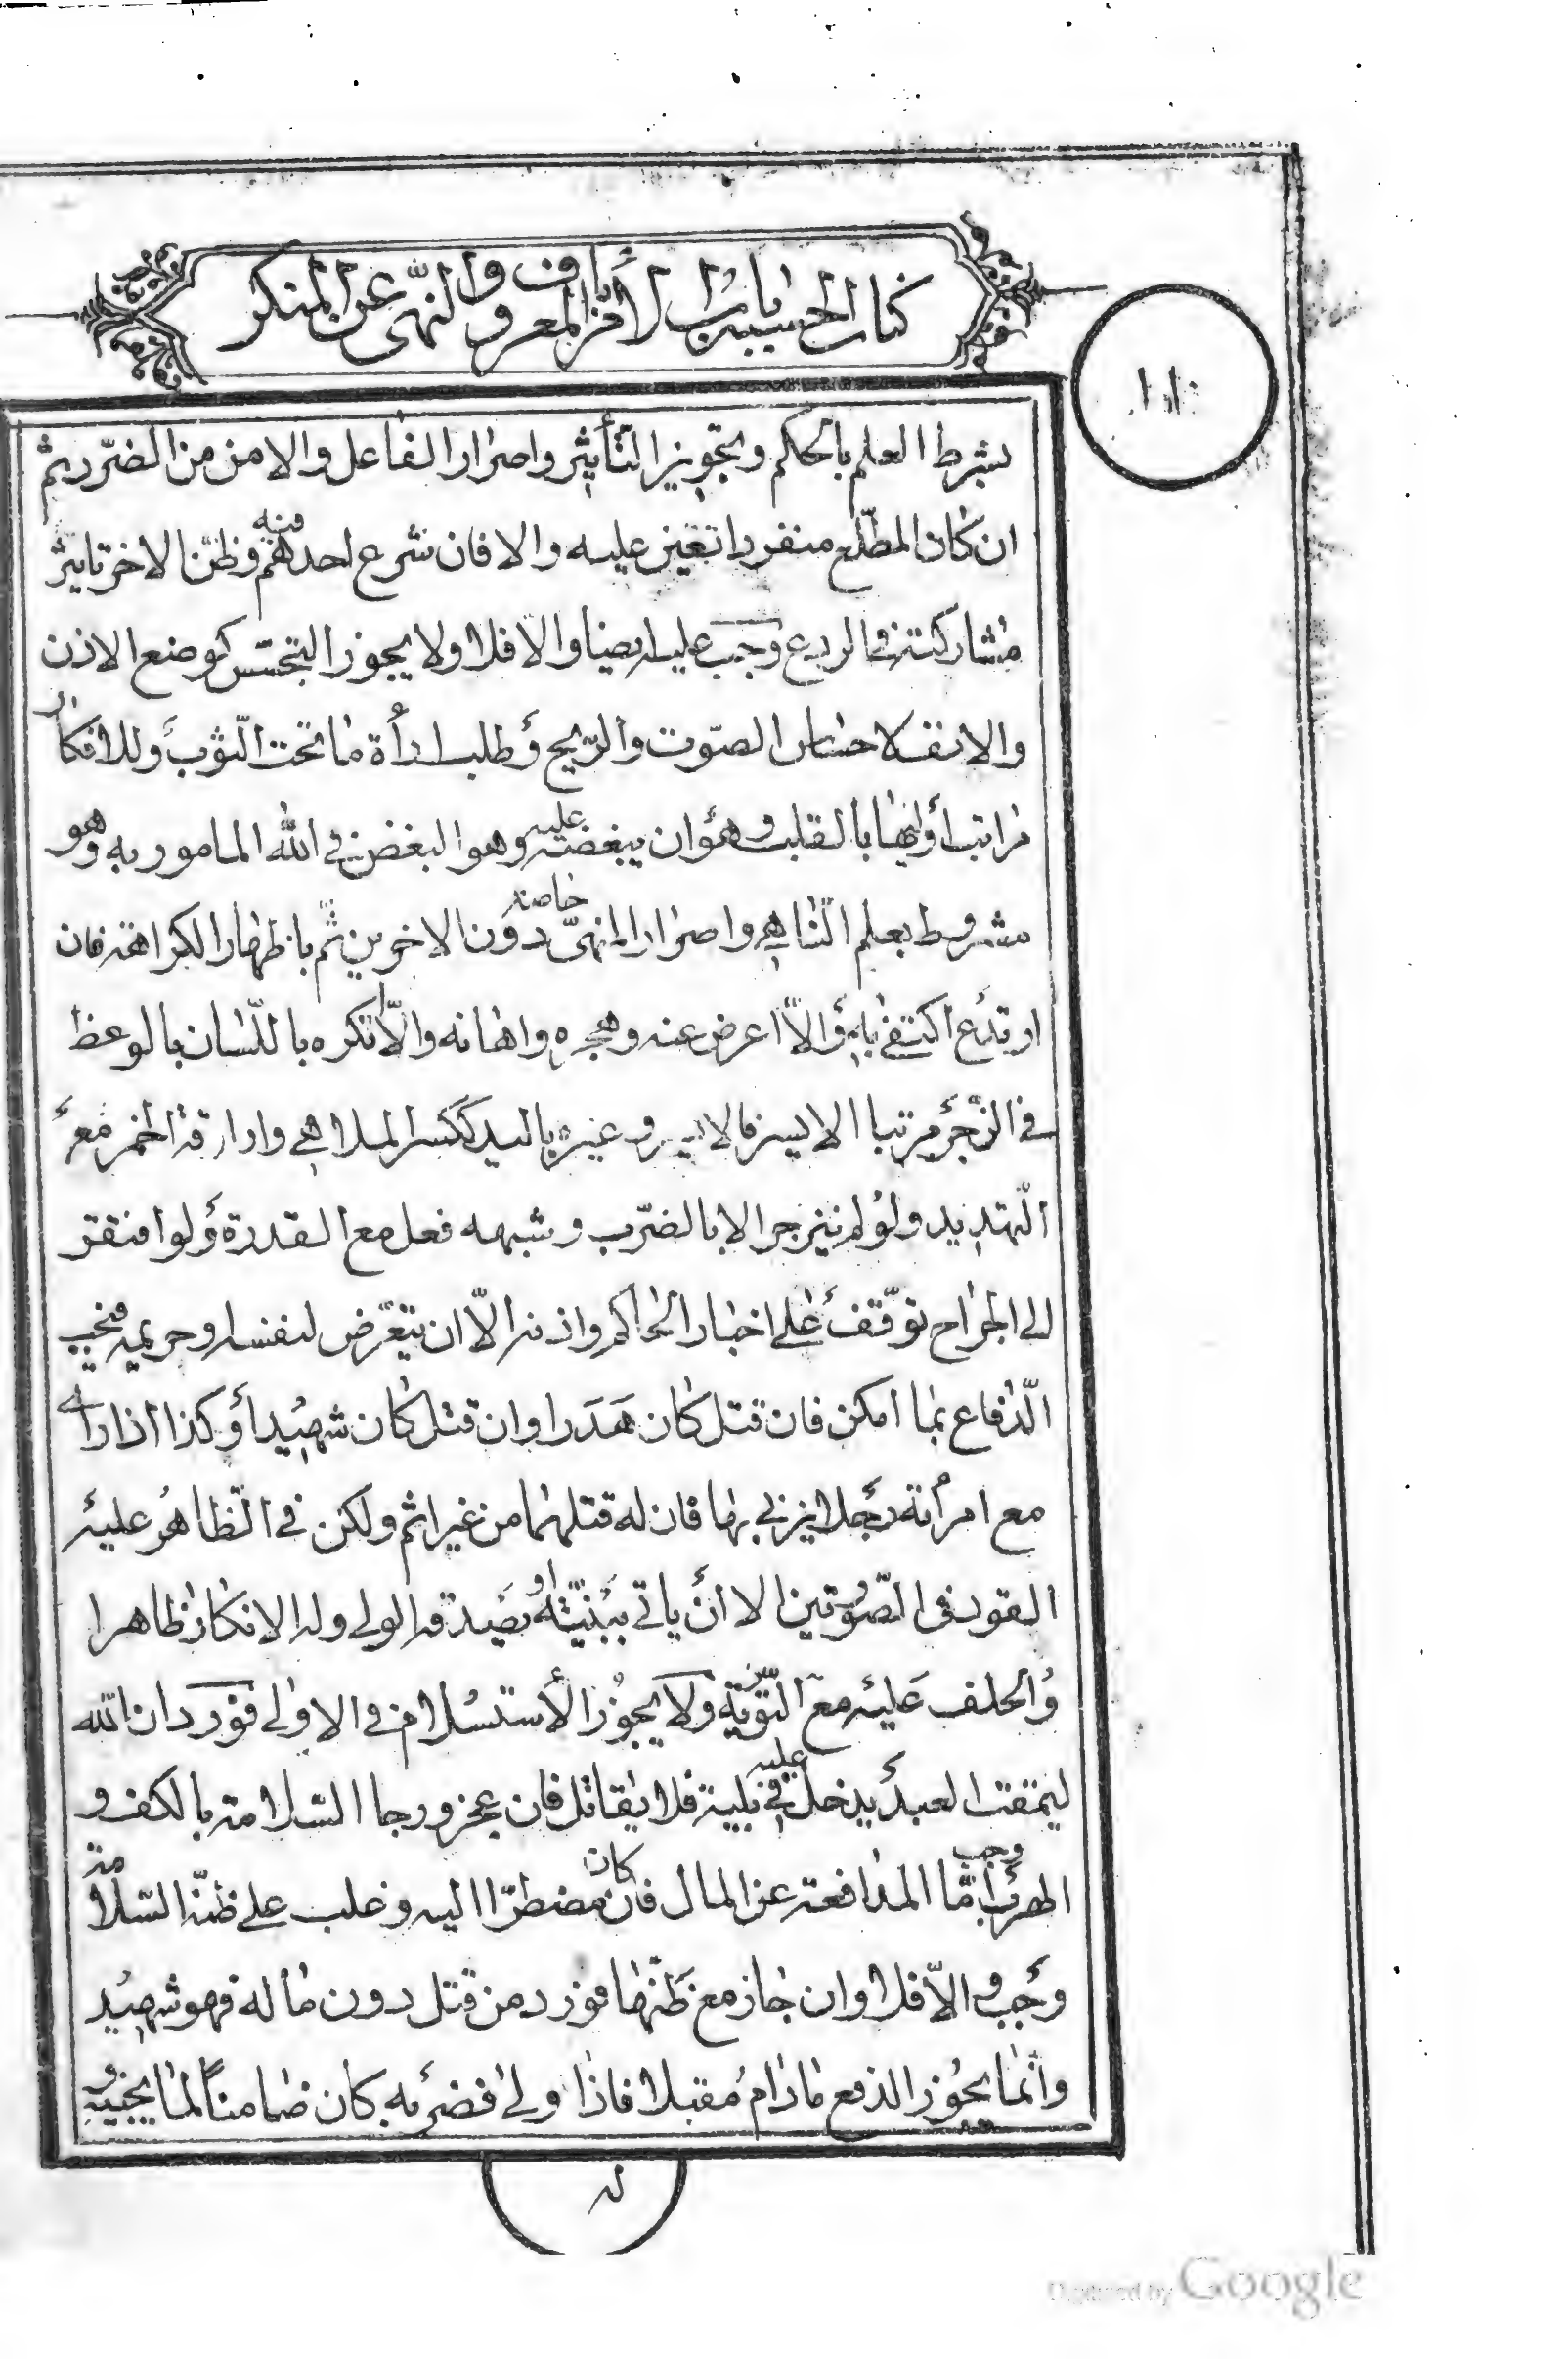 كتاب الحسبة باب الأمر بالمعروف والنهى عن المنكر
بشرط العلم بالحكم وتجويز التأثير واصرار الفاعل والامن من الضرر ثم
ان كان المطلع منفردا تعين عليه والا فان شرع احدهم فيه وظن الاخر تاثير
مشاركته فى الردع وجب عليه ايضا والا فلا ولا يجوز التجسس كوضع الاذن
والانف لاحساس الصوت والريح وطلب اراءة ما تحت الثوب وللانكار
مراتب أوليها بالقلب وهو ان يبغضه عليه وهو البغض فى الله المامور به وهو
مشروط بعلم الناهى واصرار المنهى خاصة دون الاخرين ثم باظهار الكراهة فان
ارتدع اكتفى به والا اعرض عنه وهجره واهانه والا انكره باللسان بالوعظ
فى الزجر مرتبا الايسر فالايسر وغيره باليد ككسر الملاهى واراقة الخمر مع
التهديد ولو لم ينزجر الا بالضرب وشبهه فعل مع القدرة ولو افتقر
الى الجراح توقف على اخبار الحاكم واذنه الا ان يتعرض لنفسه وحريمه فيجب
الدفاع بما امكن فان قتل كان هدرا وان قتل كان شهيدا وكذا اذا راى
مع امرأته رجلا يزنى بها فان له قتلهما من غير اثم ولكن فى الظاهر عليه
القود فى الصورتين الا أن ياتى ببينة او يصدقه الولى وله الانكار ظاهرا
والحلف عليه مع التورية ولا يجوز الأستسلام فى الاولى فورد ان الله
ليمقت العبد يدخل عليه فى بيته فلا يقاتل فان عجز ورجا السلامة بالكف و
الهرب وجب أما المدافعة عن المال فان كان مضطرا اليه وغلب على ظنه السلامة
وجب والا فلا وان جاز مع ظنها فورد من قتل دون ماله فهو شهيد
وانما يجوز الدفع مادام مقبلا فاذا ولى فضربه كان ضامنا لما يجنيه و